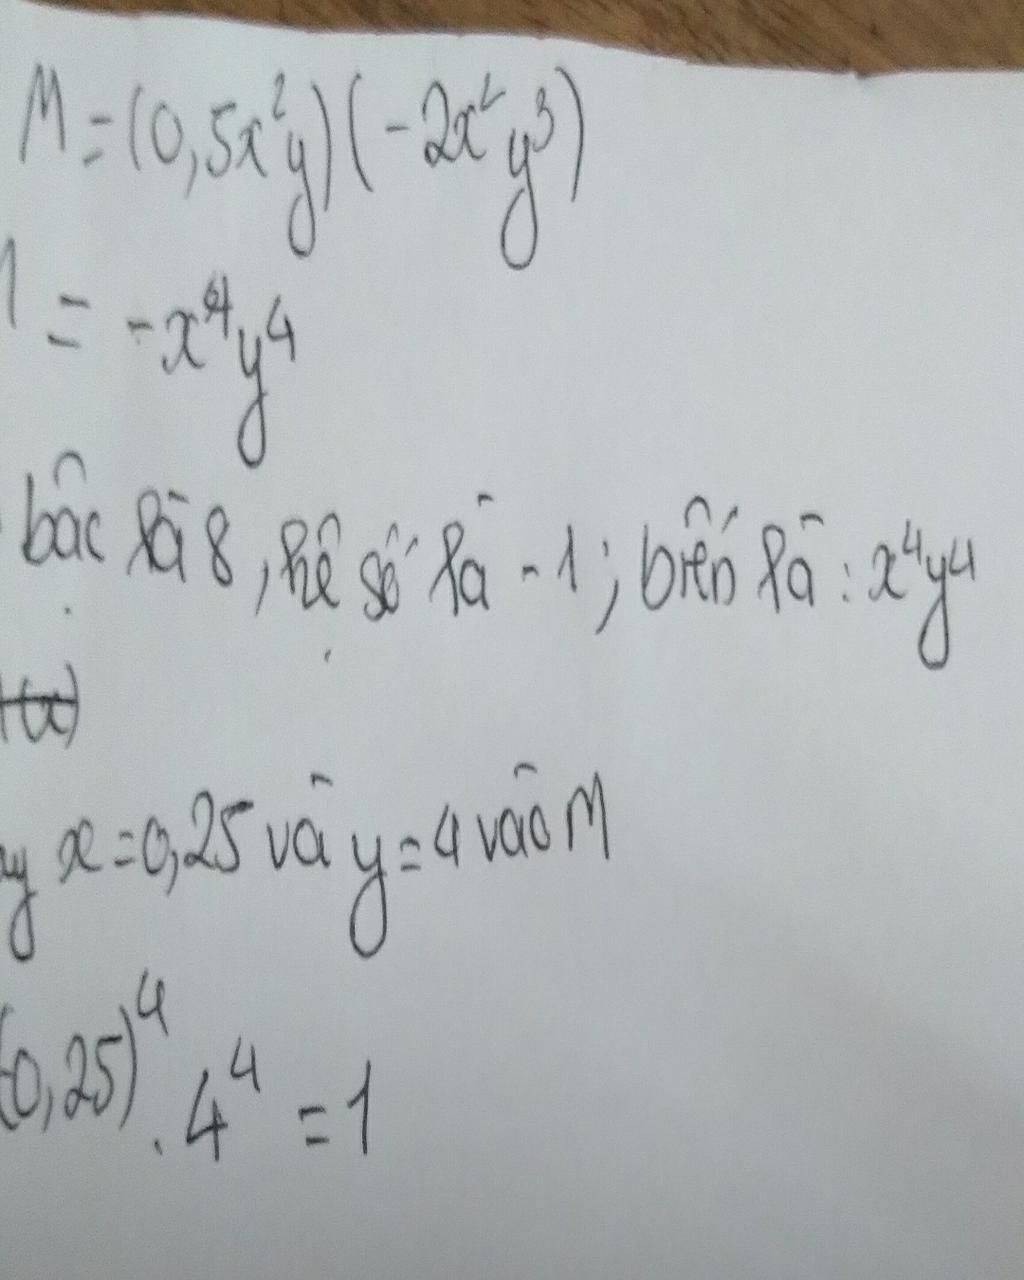 M = (0,5x²y)(-2x²y³)
= -x⁴y⁴
bậc là 8, hệ số là -1; biến là: x⁴y⁴
x = 0,25 và y = 4 vào M
(-0,25)⁴ . 4⁴ = 1